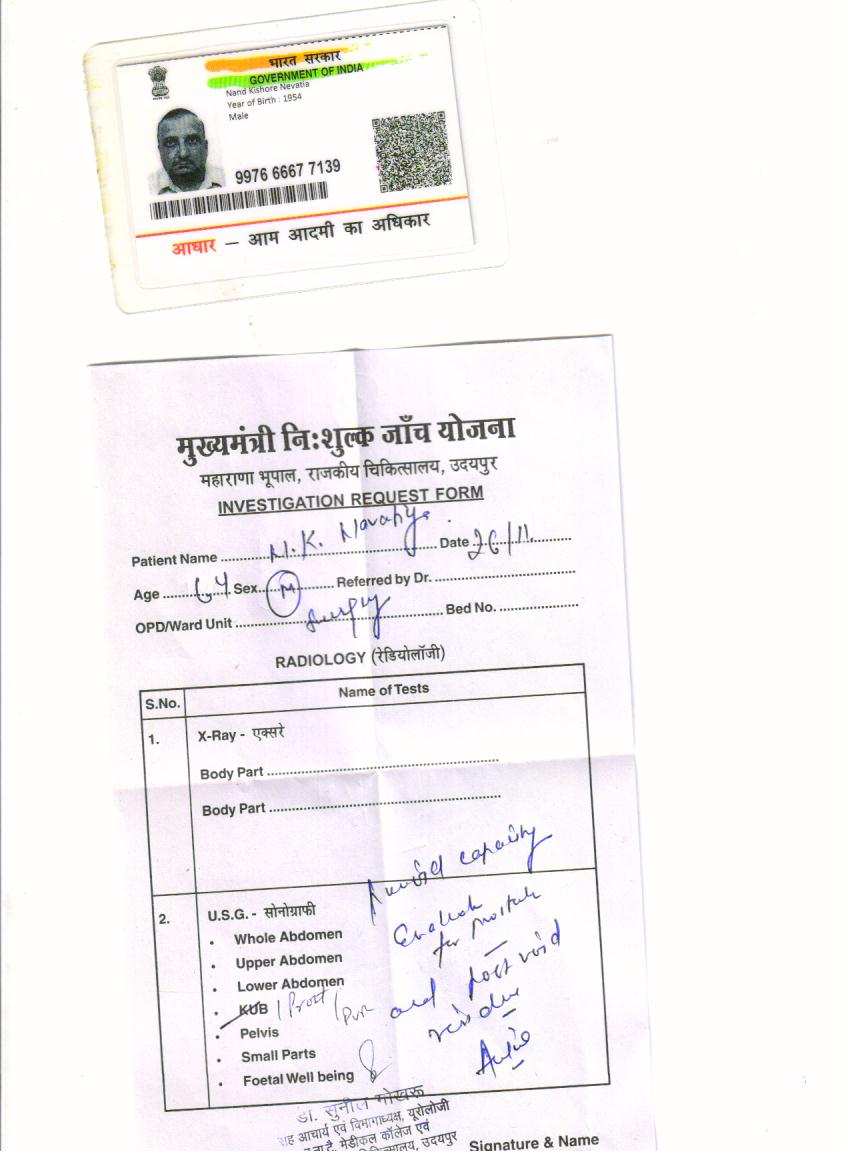 भारत सरकार
GOVERNMENT OF INDIA
Nand Kishore Nevatia
Year of Birth : 1954
Male
9976 6667 7139
आधार – आम आदमी का अधिकार
मुख्यमंत्री नि:शुल्क जाँच योजना
महाराणा भूपाल, राजकीय चिकित्सालय, उदयपुर
INVESTIGATION REQUEST FORM
Patient Name N.K. Date 26/11.
Age 64 Sex M Referred by Dr.
OPD/Ward Unit Bed No.
RADIOLOGY (रेडियोलॉजी)
S.No. Name of Tests
1. X-Ray - एक्सरे
Body Part
Body Part
capacity
2. U.S.G. - सोनोग्राफी
• Whole Abdomen Evaluate
for prostate
• Upper Abdomen
• Lower Abdomen and post void
• KUB / Prost / PVR residue
• Pelvis
• Small Parts
• Foetal Well being
डा. सुनील गोखरू
सह आचार्य एवं विभागाध्यक्ष, यूरोलोजी
मेडीकल कॉलेज एवं
चिकित्सालय, उदयपुर Signature & Name